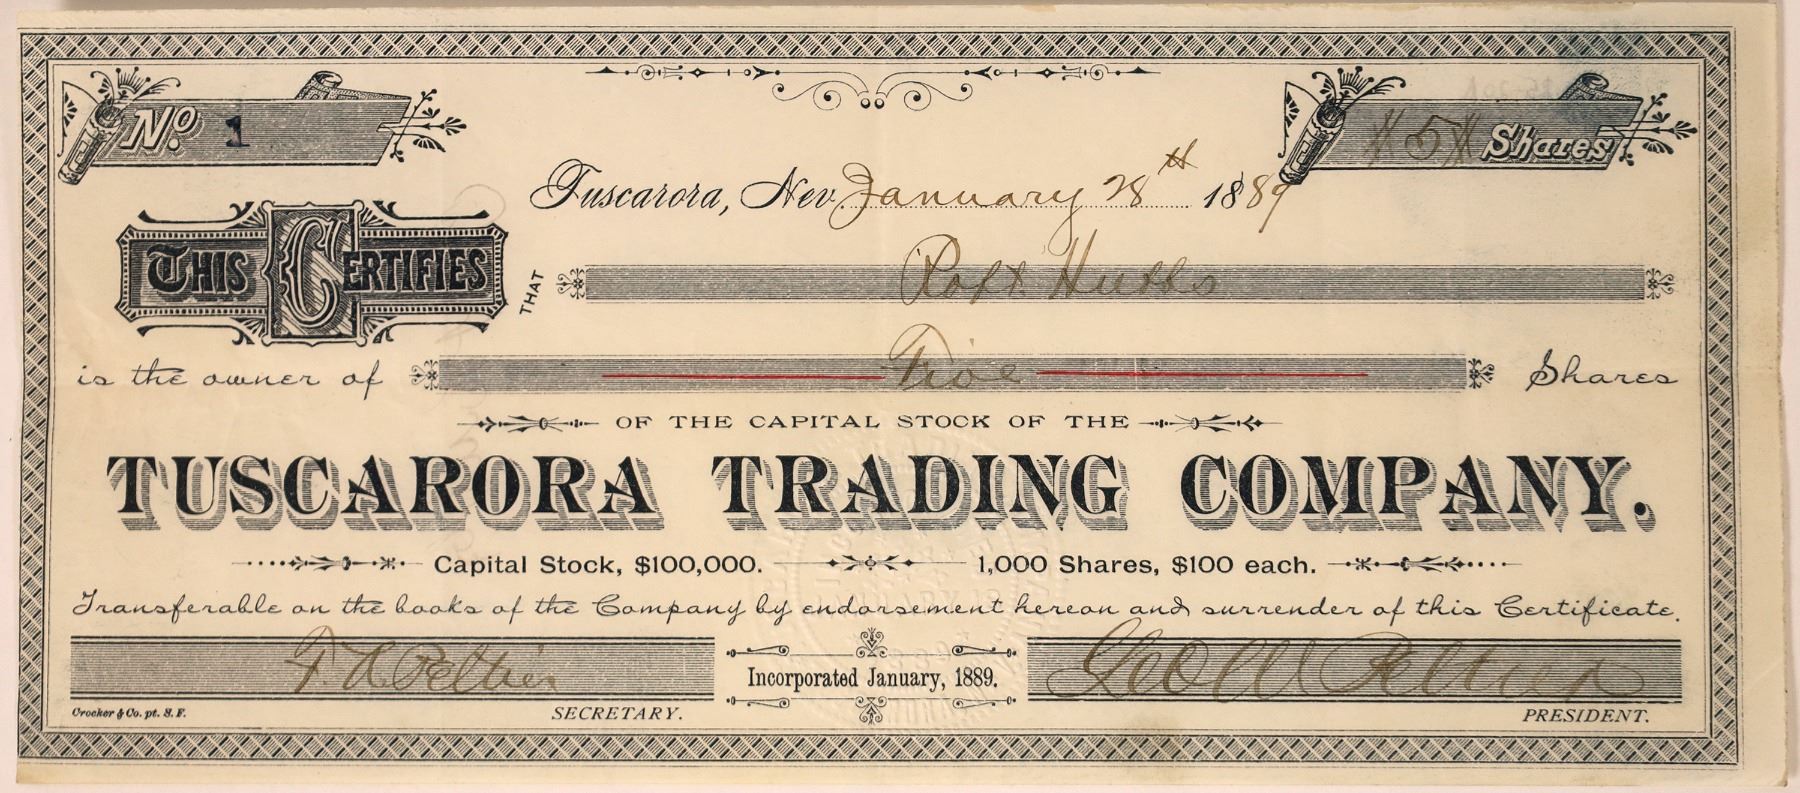 No. 1
$ 5 $ Shares
Tuscarora, Nev. January 28th 1889
THIS CERTIFIES THAT Robt Hubbs
is the owner of Five Shares
OF THE CAPITAL STOCK OF THE
TUSCARORA TRADING COMPANY.
Capital Stock, $100,000. 1,000 Shares, $100 each.
Transferable on the books of the Company by endorsement hereon and surrender of this Certificate.
Geo W Peltier
Incorporated January, 1889.
Crocker & Co. pt. S. F.
SECRETARY.
PRESIDENT.